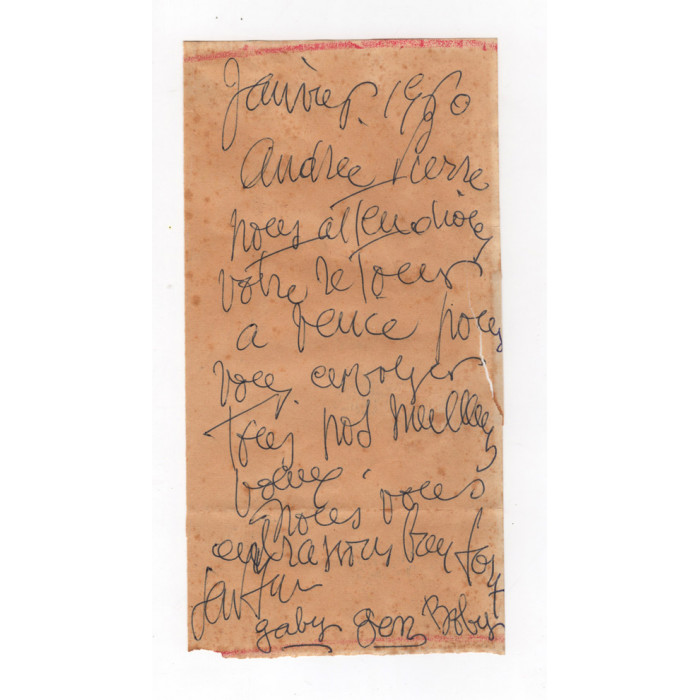 Janvier. 1950
Andree Pierre
nous attendions
votre retour
a Vence pour
vous envoyer
tous nos meilleurs
voeux.
nous vous
embrassons bien fort
gaby Gen Boby